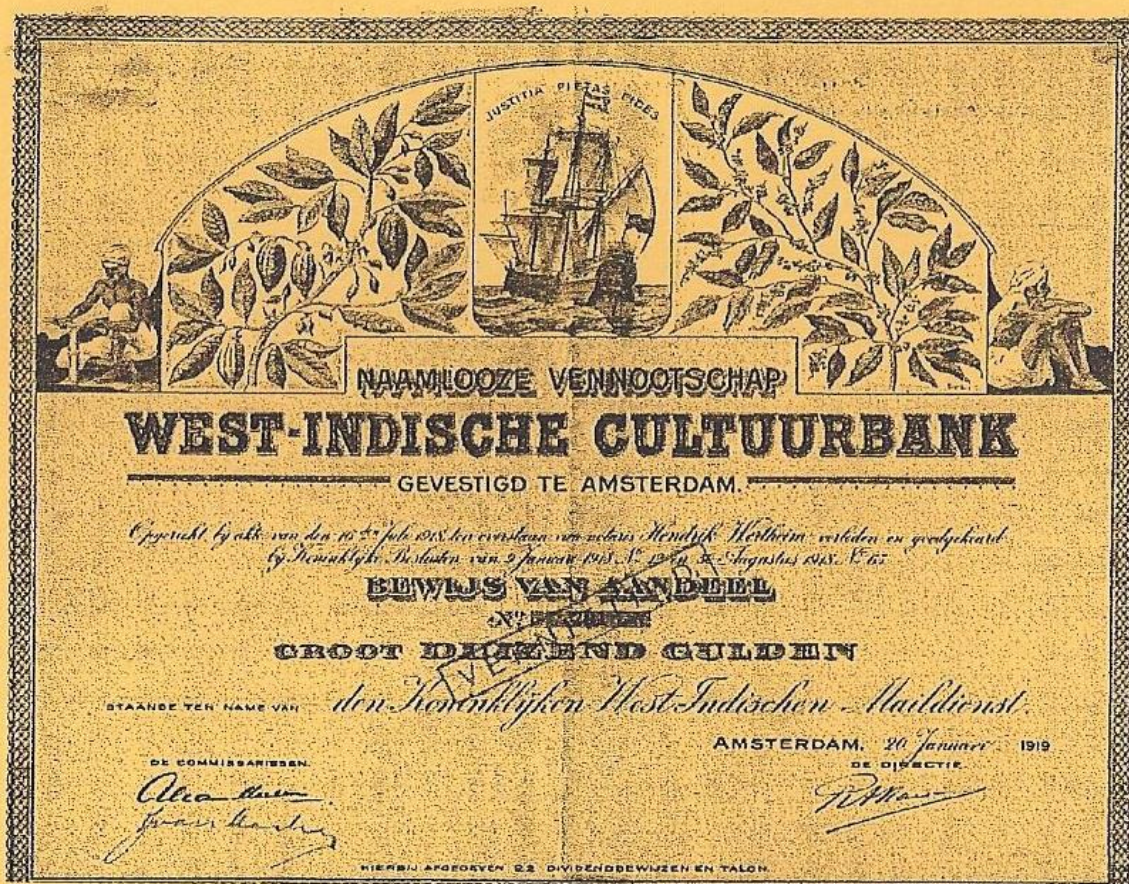 JUSTITIA PIETAS FIDES
NAAMLOOZE VENNOOTSCHAP
WEST-INDISCHE CULTUURBANK
GEVESTIGD TE AMSTERDAM.
Opgericht by akte van den 16den July 1918 ten overstaan van notaris Hendrik Wertheim verleden en goedgekeurd
by Koninklyke Besluiten van 9 Januari 1918 No Augustus 1918 No
BEWIJS VAN AANDEEL
No
GROOT DUIZEND GULDEN
STAANDE TEN NAME VAN den Koninklijken West-Indischen Maildienst.
AMSTERDAM, 20 Januari 1919
DE COMMISSARISSEN.
DE DIRECTIE
HIERBIJ AFGEGEVEN 22 DIVIDENDBEWIJZEN EN TALON.